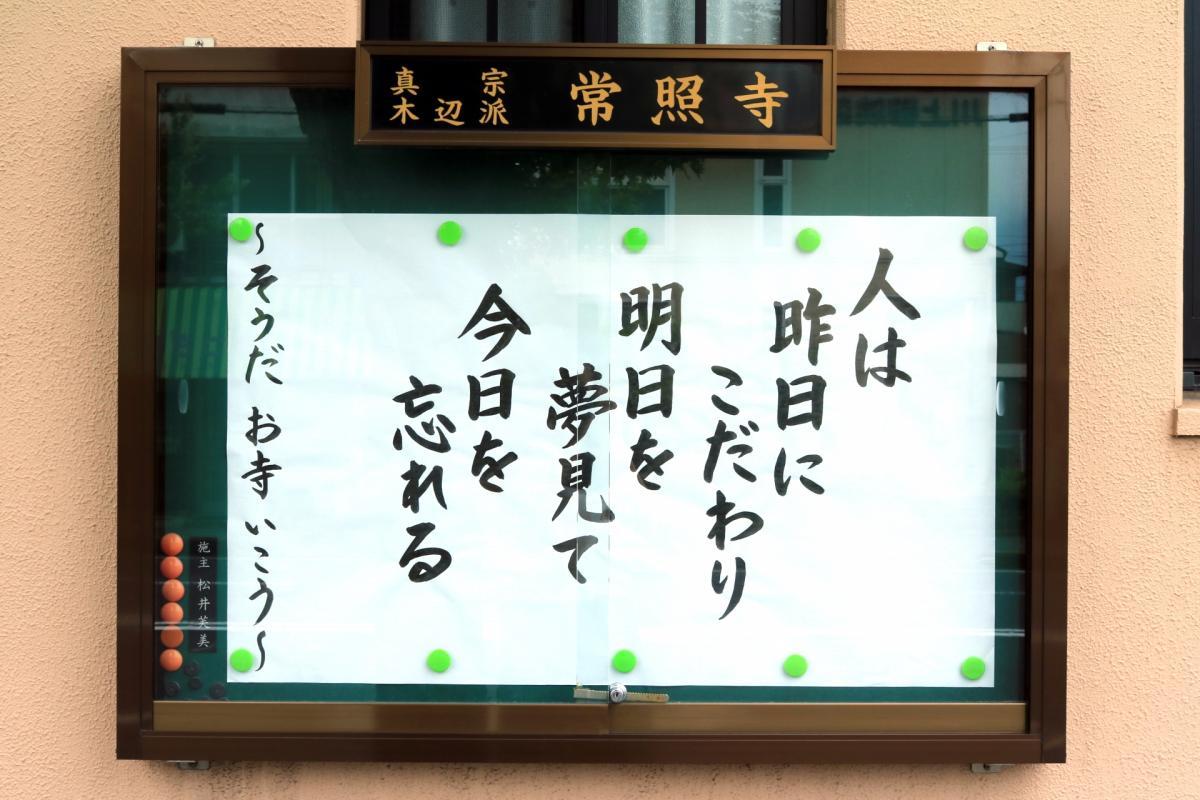 真宗
木辺派
常照寺
人は
昨日に
こだわり
明日を
夢見て
今日を
忘れる
～そうだ お寺 いこう～
施主 松井芙美